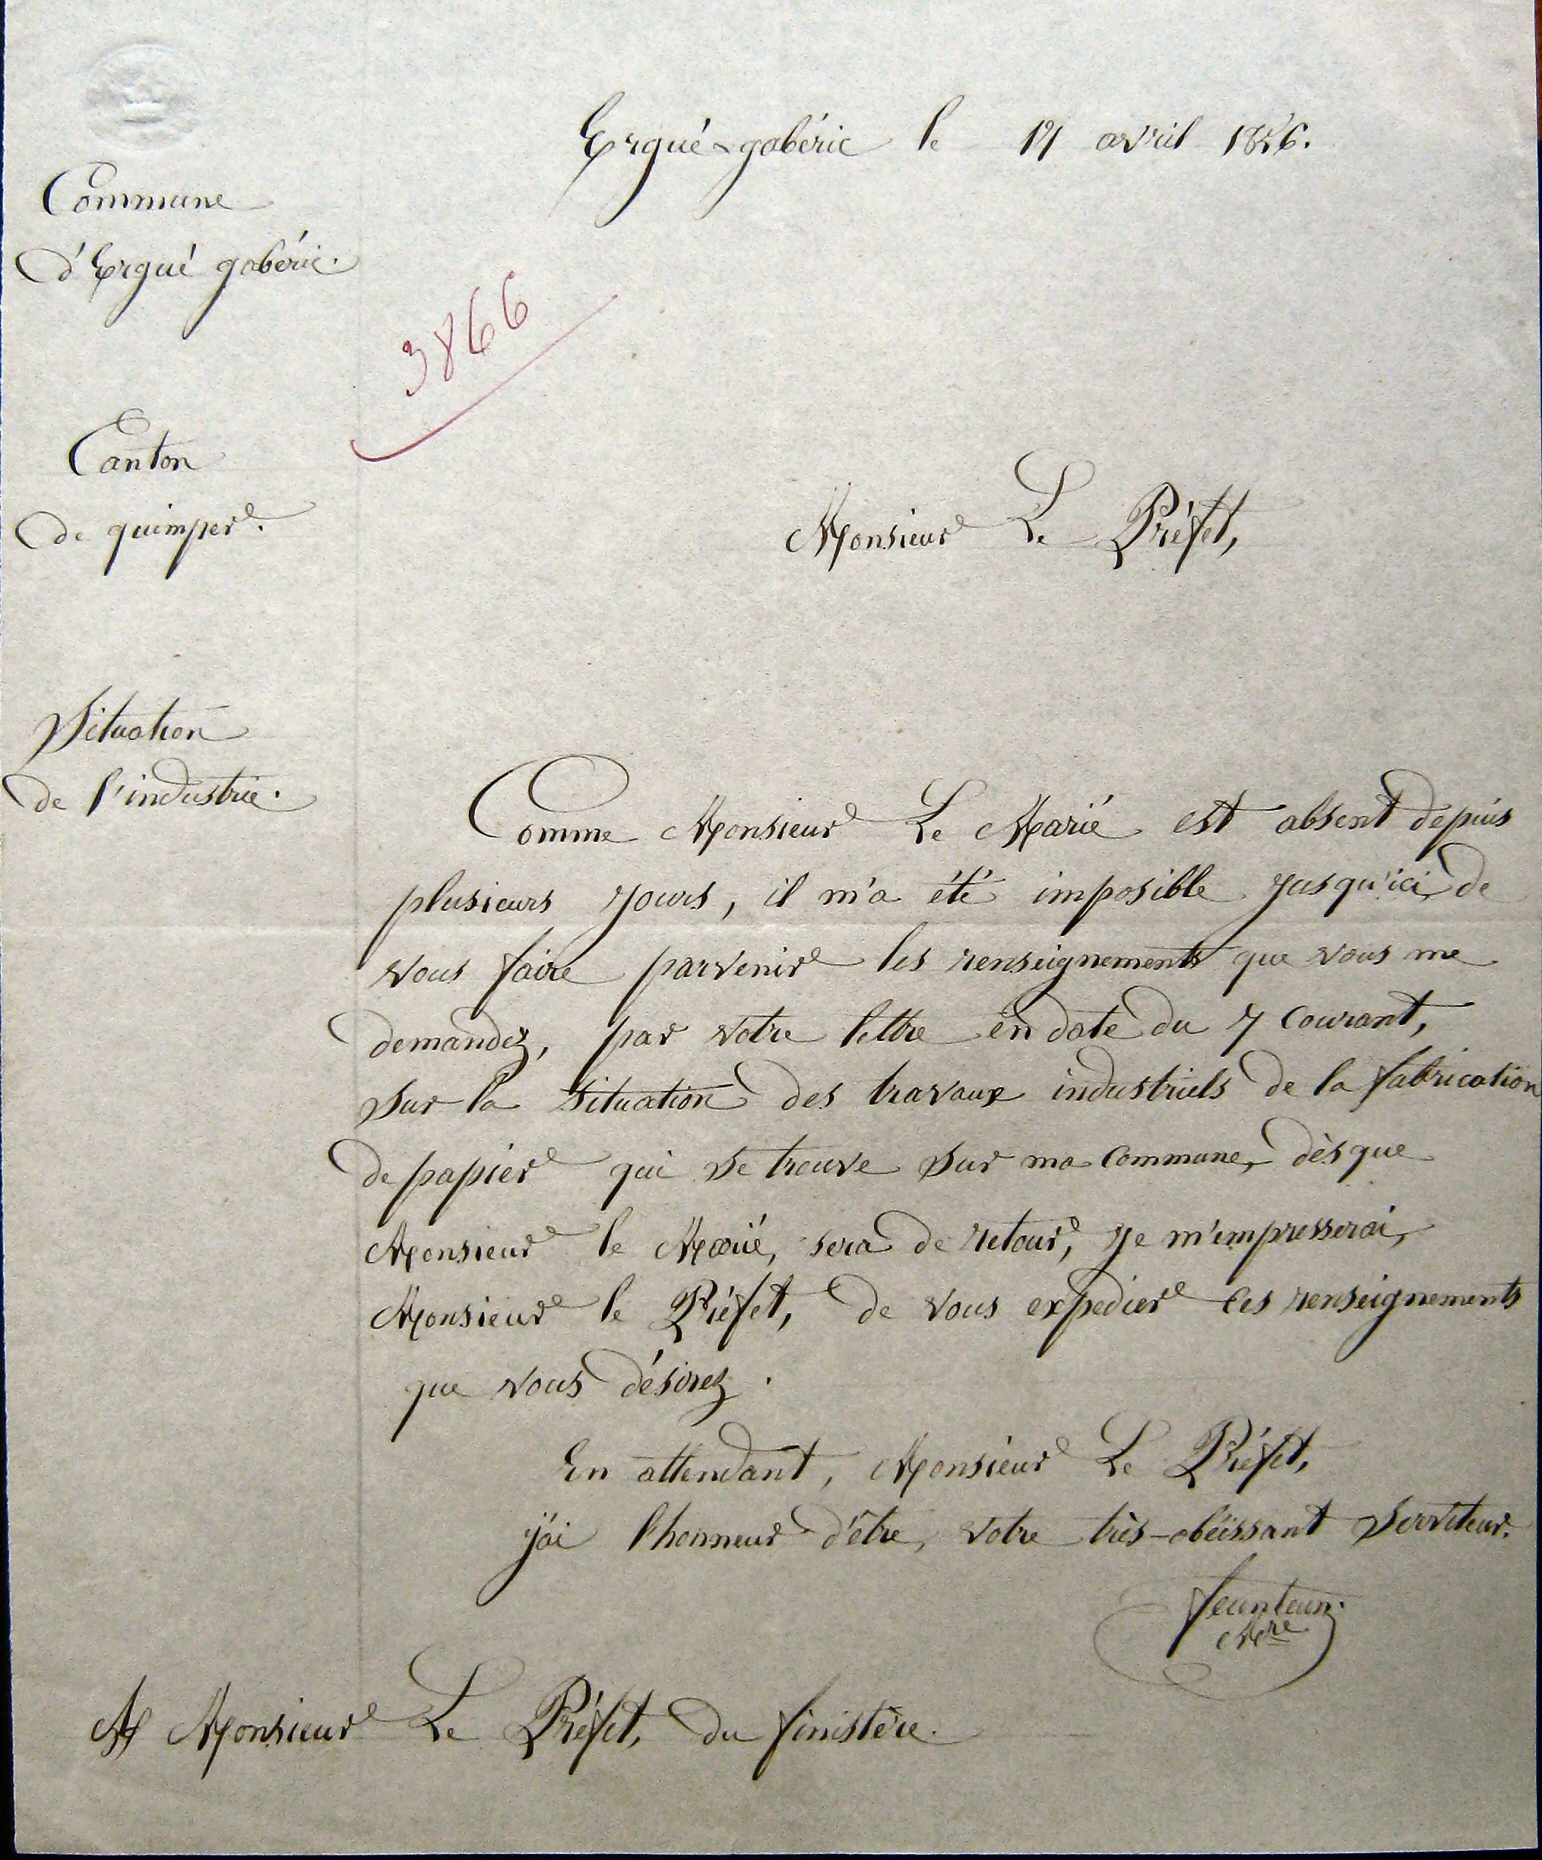 Ergué-gabéric le 17 avril 1856.
Commune
d'Ergué gabéric.
3866
Canton
de quimper.
Monsieur Le Préfet,
Situation
de l'industrie.
Comme Monsieur Le Marié est absent depuis
plusieurs jours, il m'a été imposible jusqu'ici de
vous faire parvenir les renseignements que vous me
demandez, par votre lettre en date du 7 courant,
sur la situation des travaux industriels de la fabrication
de papier qui se trouve sur ma commune, dès que
Monsieur le Marié, sera de retour, je m'empresserai,
Monsieur le Préfet, de vous expedier les renseignements
que vous désirez.
En attendant, Monsieur Le Préfet,
j'ai l'honneur d'être, votre très-obéissant Serviteur.
feunteun.
Mre
A Monsieur Le Préfet, du finistère.